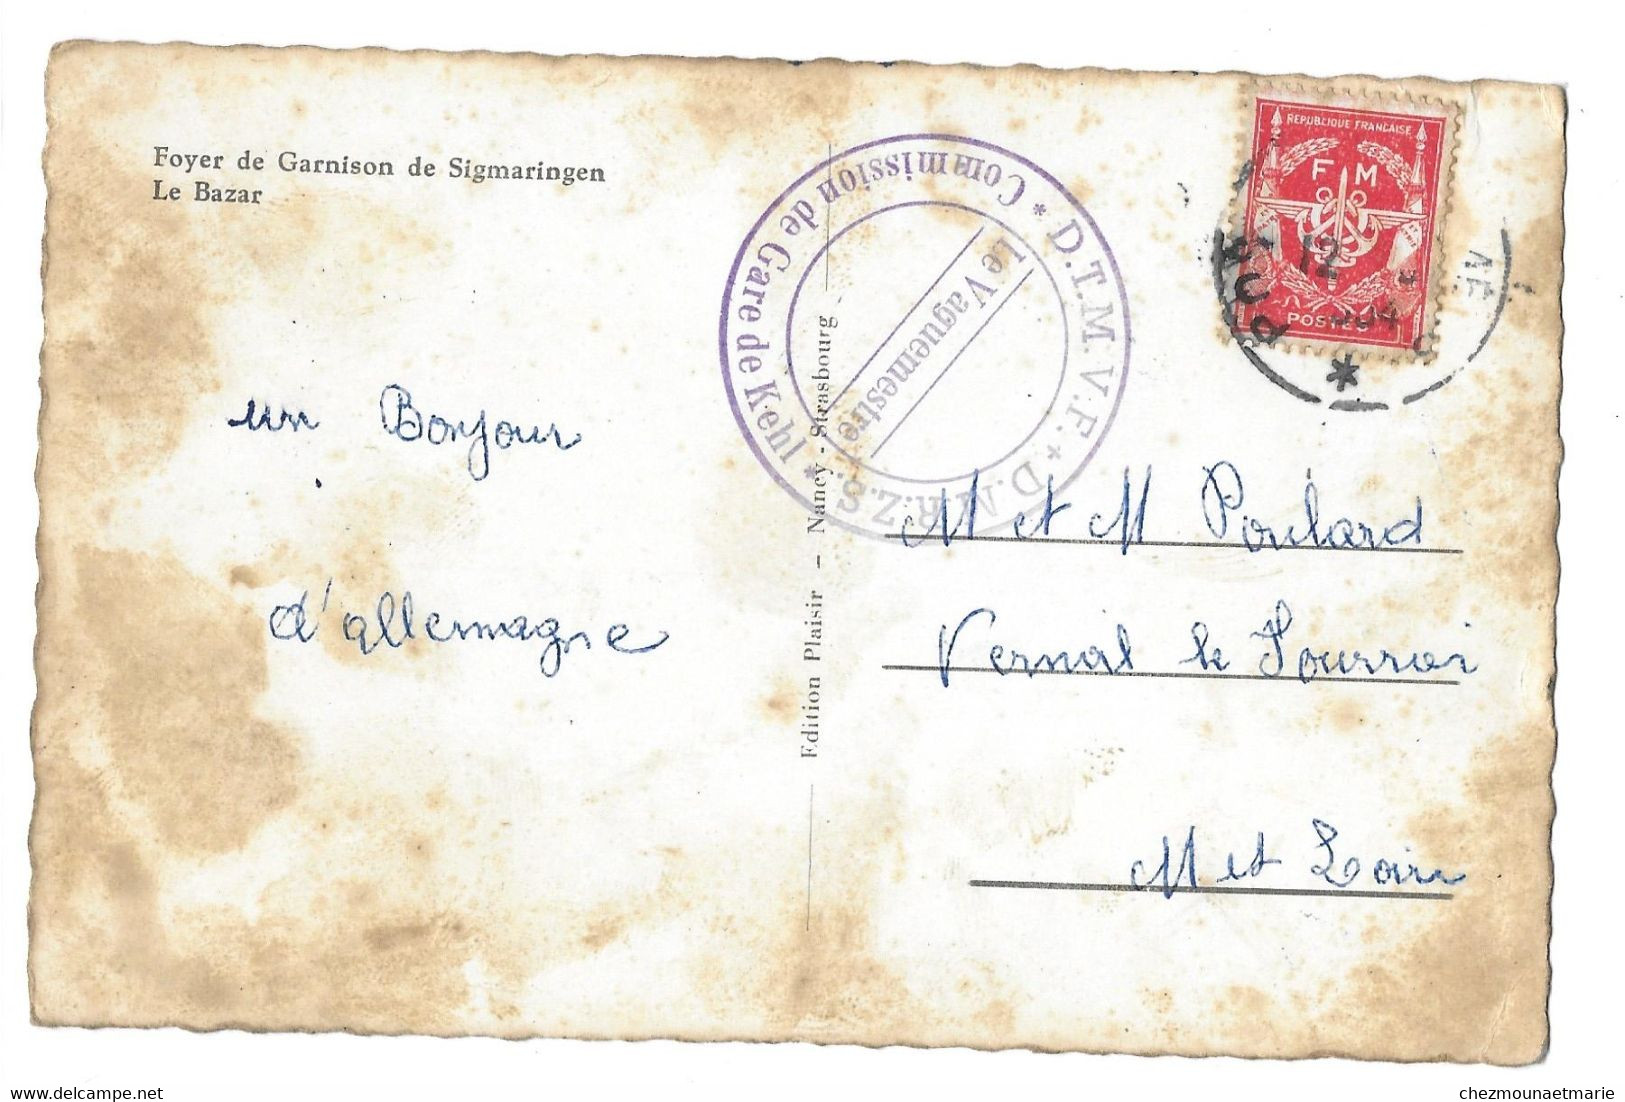 Foyer de Garnison de Sigmaringen
Le Bazar
un Bonjour
d'allemagne
Edition Plaisir – Nancy - Strasbourg
* D.T.M.V.F. * D.M.R.Z.S. *
Commission de Gare de Kehl
Le Vaguemestre
REPUBLIQUE FRANCAISE
F M
POSTES
12
*
M et M Poulard
Vernal le Fourrai
M et Loire
chezmounaetmarie